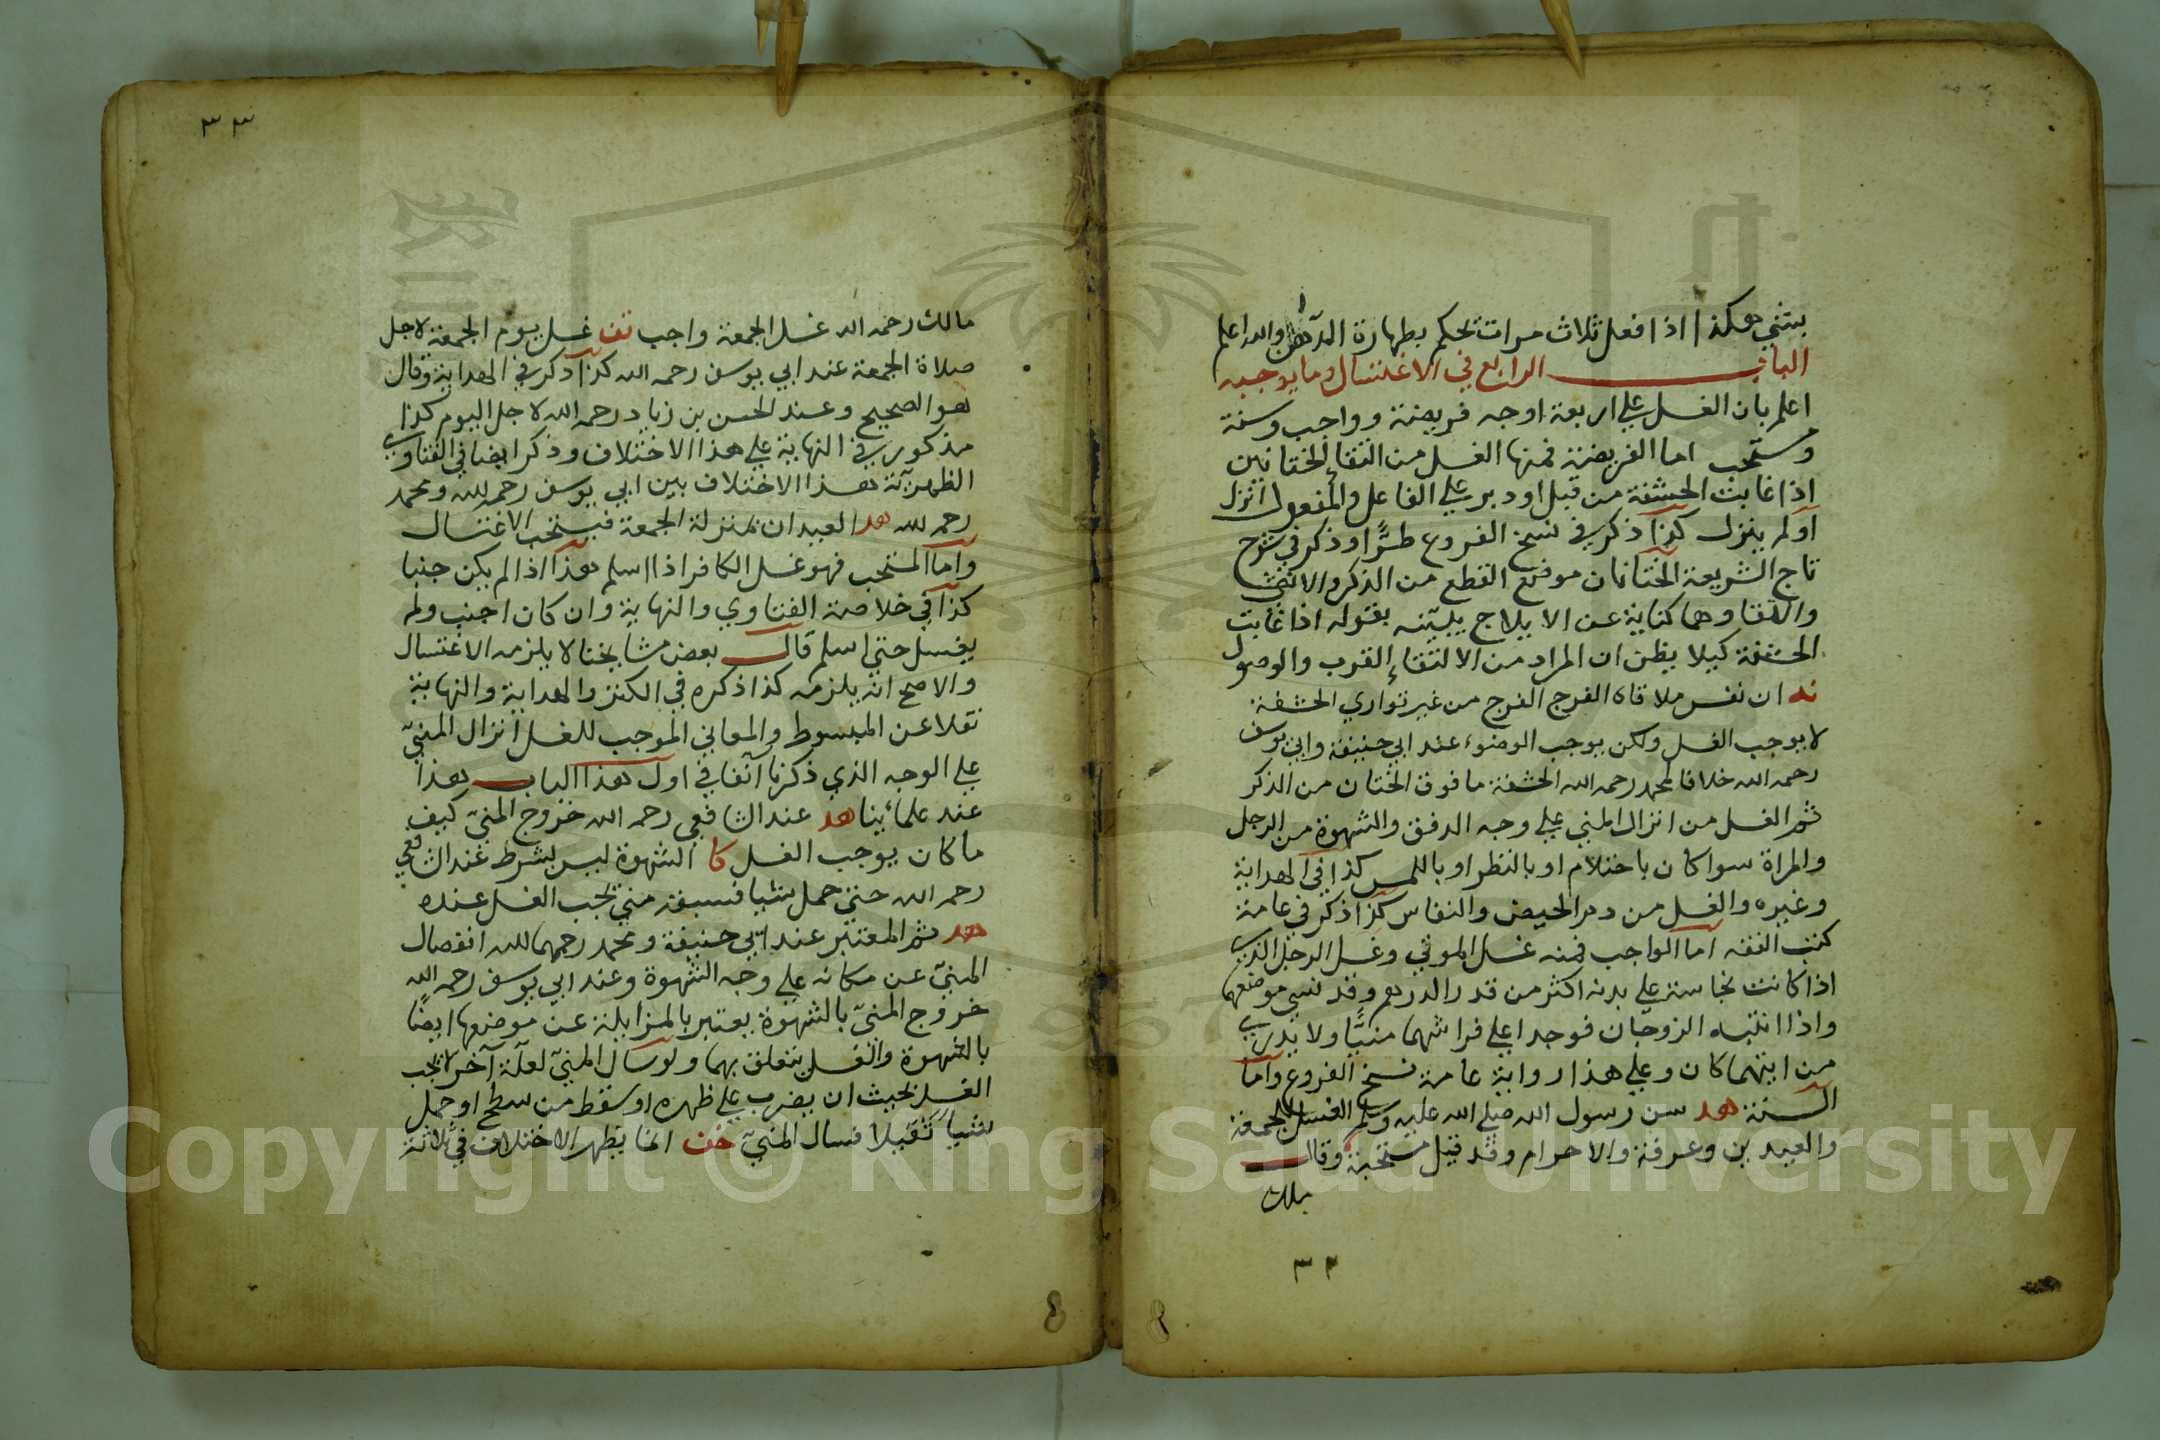 بشئ هكذا اذا فعل ثلاث مرات تحكم بطهارة الدهن والله اعلم
الباب الرابع في الاغتسال وما يوجبه
اعلم بان الغسل على اربعة اوجه فريضة وواجب وسنة
ومستحب اما الفريضة فمنها الغسل من التقاء الختانين
اذا غابت الحشفة من قبل او دبر على الفاعل والمفعول انزل
اولم ينزل كذا ذكر في نسخ الفروع طرًّا وذكر في شرح
تاج الشريعة الختانان موضع القطع من الذكر والانثى
والتقاوهما كناية عن الايلاج يبيّنه بقوله اذا غابت
الحشفة كيلا يظن ان المراد من الالتقاء القرب والوصول
نه ان نفس ملاقاة الفرج الفرج من غير تواري الحشفة
لا يوجب الغسل ولكن يوجب الوضوء عند ابي حنيفة وابي يوسف
رحمه الله خلافا لمحمد رحمه الله الحشفة ما فوق الختان من الذكر
ثم الغسل من انزال المني على وجه الدفق والشهوة من الرجل
والمراة سوا كان باحتلام او بالنظر او باللمس كذا في الهداية
وغيره والغسل من دم الحيض والنفاس كذا ذكر في عامة
كتب الفقه اما الواجب فمنه غسل الموتى وغسل الرجل الذي
اذا كانت نجاسة على بدنه اكثر من قدر الدرهم وقد نسي موضعها
واذا انتبه الزوجان فوجدا على فراشهما منيًّا ولا يدري
من ايتهما كان وعلى هذا رواية عامة نسخ الفروع واما
السنة هد سن رسول الله صلى الله عليه وسلم الغسل للجمعة
والعيدين وعرفة والاحرام وقد قيل مستحبة وقال
ملك
٣٢
٣٣
مالك رحمه الله غسل الجمعة واجب تف غسل يوم الجمعة لاجل
صلاة الجمعة عند ابي يوسف رحمه الله كذا ذكر في الهداية وقال
هو الصحيح وعند الحسن بن زياد رحمه الله لاجل اليوم كذا
مذكور في النهاية على هذا الاختلاف وذكر ايضا في الفتاوي
الظهيرية هذا الاختلاف بين ابي يوسف رحمه الله ومحمد
رحمه الله هد العيدان بمنزلة الجمعة فيستحب الاغتسال
واما المستحب فهو غسل الكافر اذا اسلم هذا اذا لم يكن جنبا
كذا في خلاصة الفتاوي والنهاية وان كان اجنب ولم
يغسل حتى اسلم قال بعض مشايخنا لا يلزمه الاغتسال
والاصح انه يلزمه كذا ذكره في الكنز والهداية والنهاية
نقلا عن المبسوط والمعاني الموجب للغسل انزال المنيّ
على الوجه الذي ذكرنا آنفا في اول هذا الباب هذا
عند علمائينا هد عند الشافعي رحمه الله خروج المنيّ كيف
ما كان يوجب الغسل كا الشهوة ليس بشرط عند الشافعي
رحمه الله حتى حمل شيا فسبقه مني يجب الغسل عنده
هد ثم المعتبر عند ابي حنيفة ومحمد رحمهما لله انفصال
المنيّ عن مكانه على وجه الشهوة وعند ابي يوسف رحمه الله
خروج المنيّ بالشهوة يعتبر بالمزايلة عن موضعها ايضًا
بالشهوة والغسل يتعلق بهما ولو سال المنيّ لعلّة آخر لا يجب
الغسل بحيث ان يضرب على ظهره او سقط من سطح او حمل
شيأ ثقيلا فسال المنيّ خف انما يظهر الاختلاف في ثلاثة
Copyright © King Saud University
1957